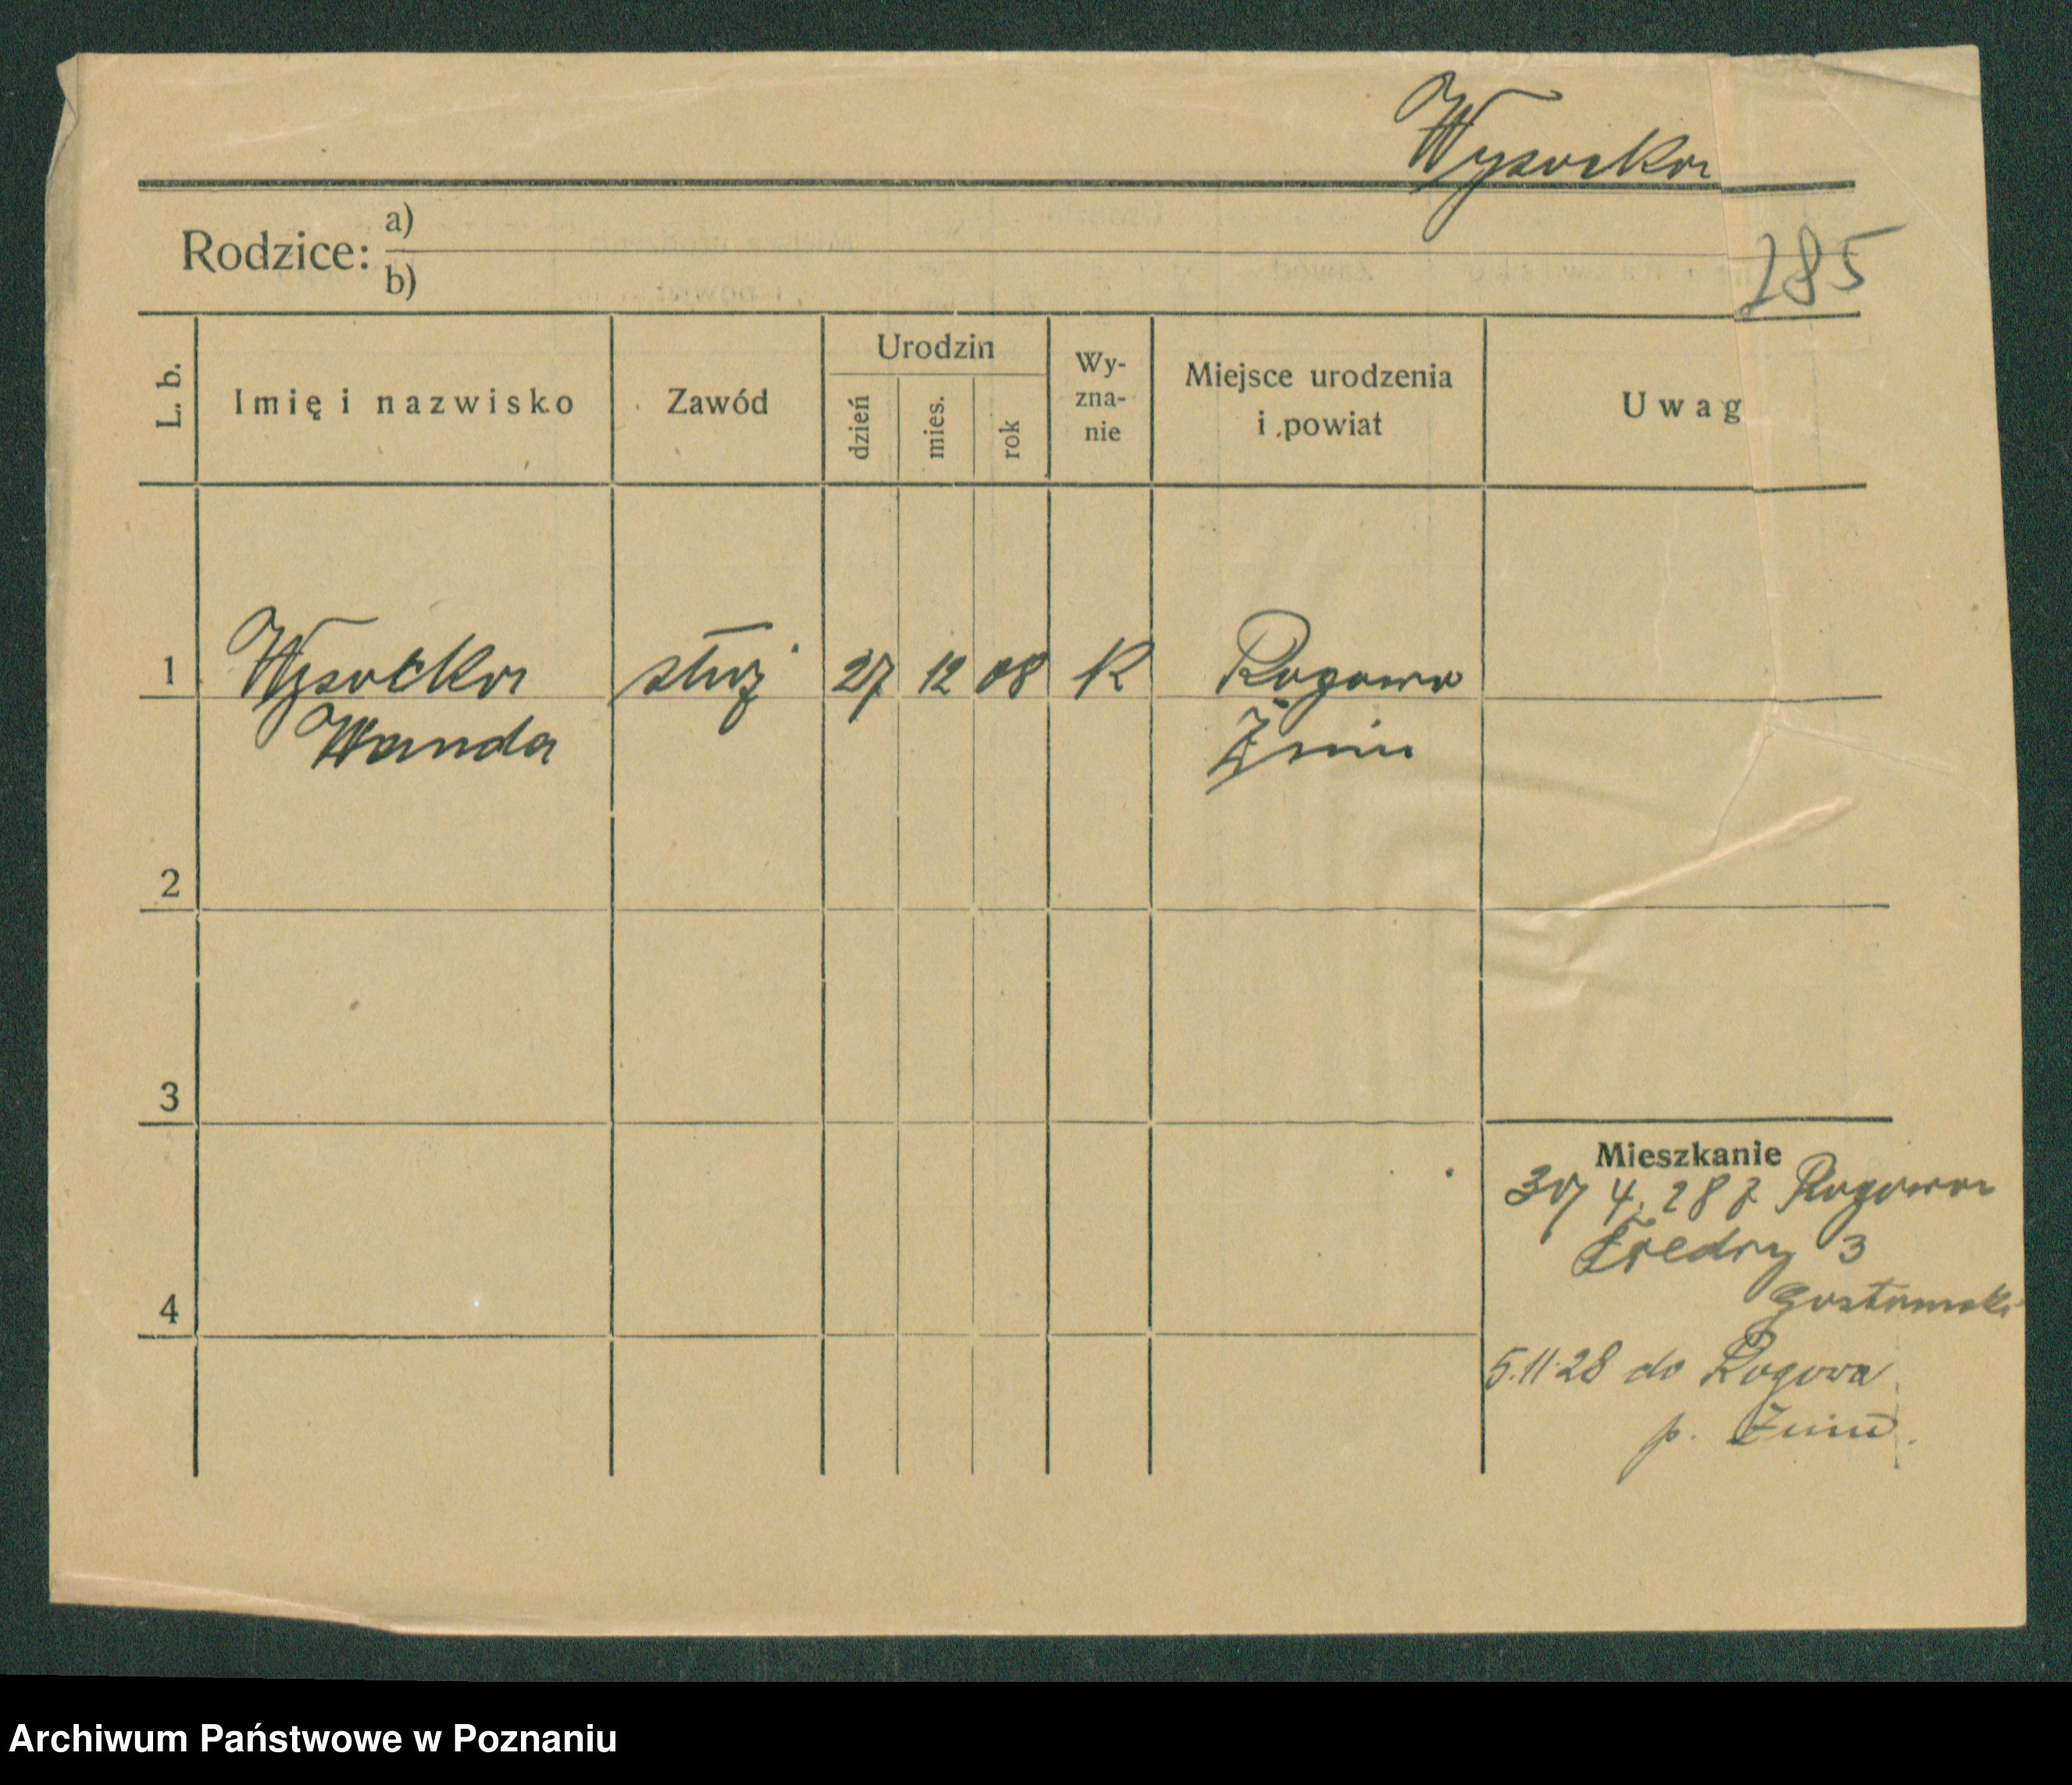 Wysocka
285
Rodzice: a)
b)
L. b. Imię i nazwisko Zawód Urodzin dzień mies. rok Wy-zna-nie Miejsce urodzenia i powiat Uwag
1 Wysocka służ 27 12 08 K Rogowo
Wanda Żnin
2
3
4
Mieszkanie
30/4.28 z Rogowa
Fredry 3
5.11.28 do Rogowa
p. Żnin.
Archiwum Państwowe w Poznaniu